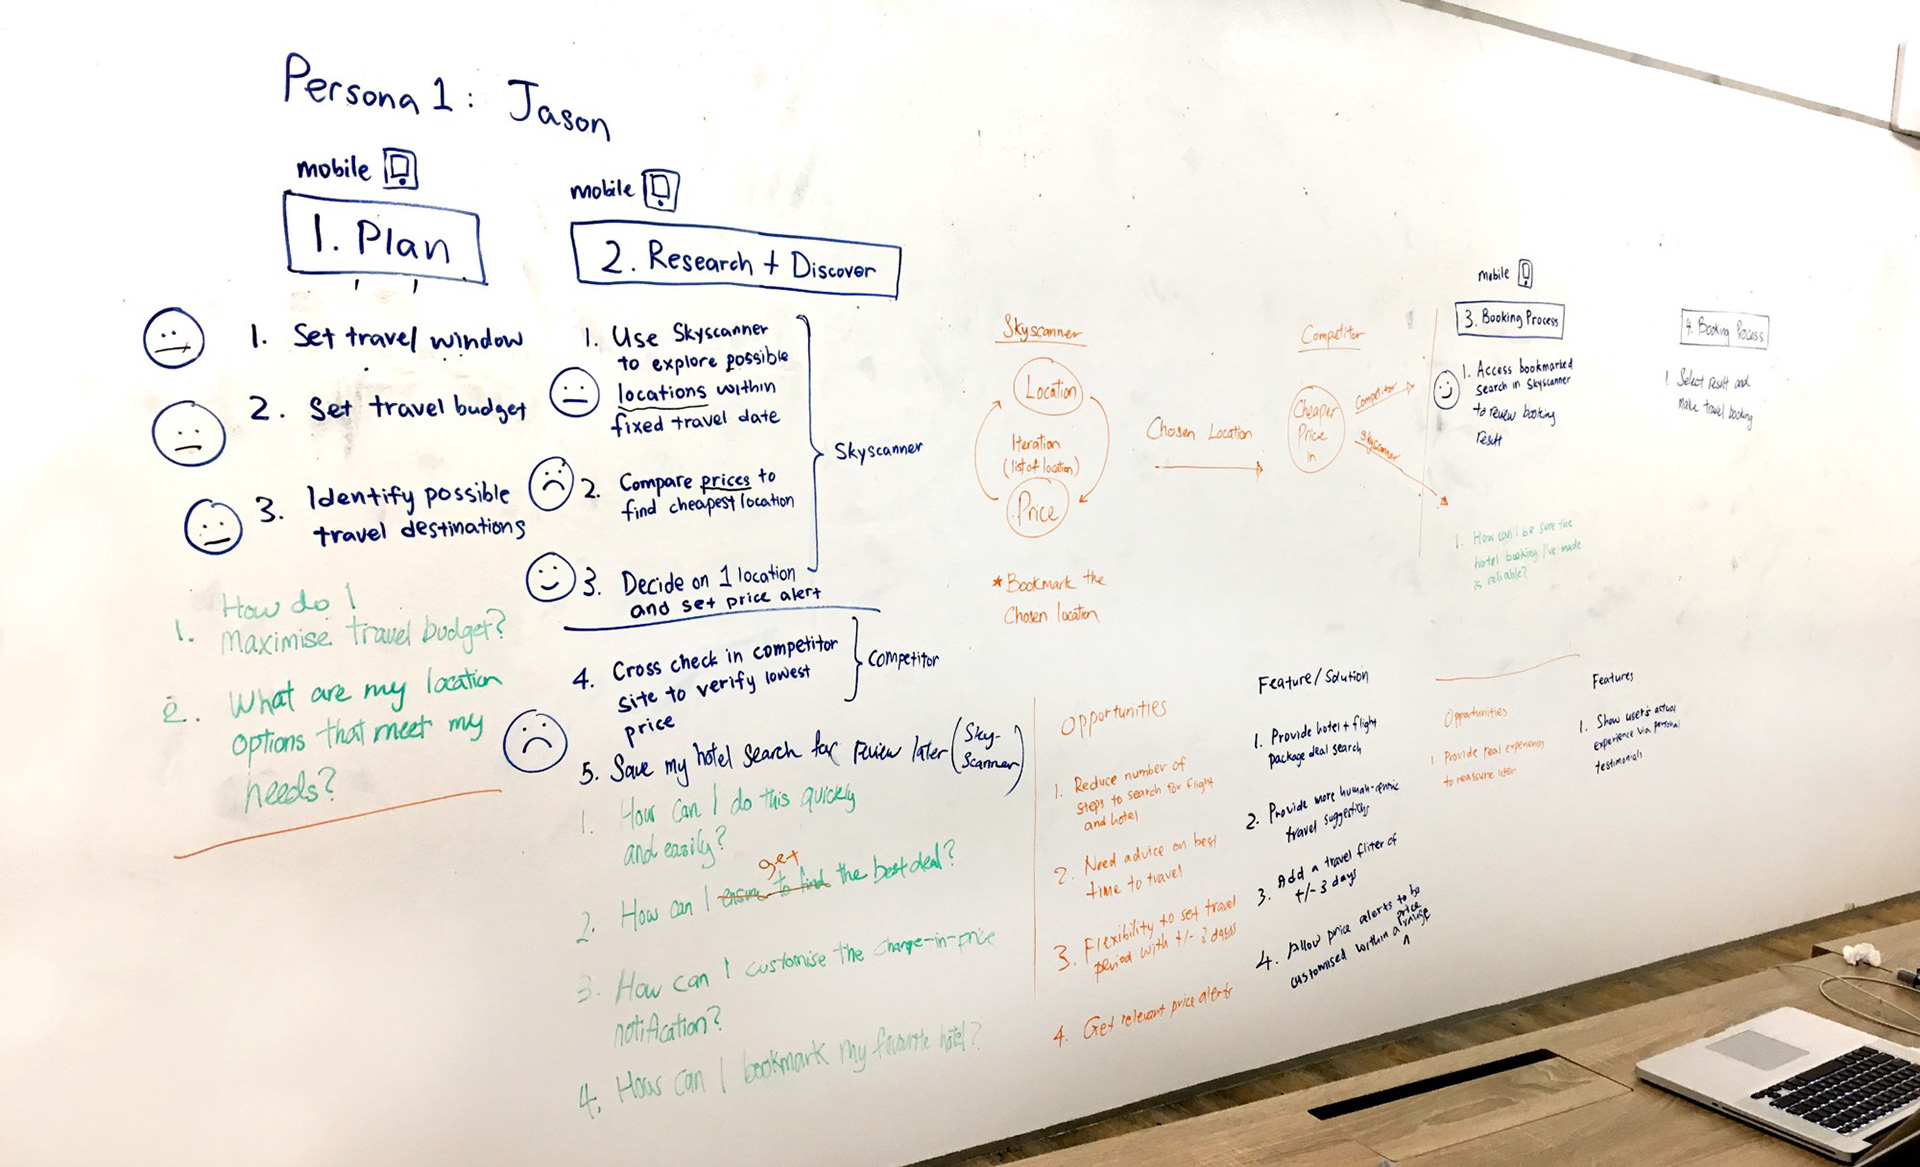 Persona 1: Jason
mobile
1. Plan
1. Set travel window
2. Set travel budget
3. Identify possible
travel destinations
1. How do I
maximise travel budget?
2. What are my location
options that meet my
needs?
mobile
2. Research + Discover
1. Use Skyscanner
to explore possible
locations within
fixed travel date
2. Compare prices to
find cheapest location
3. Decide on 1 location
and set price alert
Skyscanner
4. Cross check in competitor
site to verify lowest
price
Competitor
5. Save my hotel search for review later (Sky-
Scanner)
1. How can I do this quickly
and easily?
get
2. How can I ensure to find the best deal?
3. How can I customise the change-in-price
notification?
4. How can I bookmark my favourite hotel?
Skyscanner
Location
Iteration
(list of location)
Price
* Bookmark the
Chosen location
Chosen Location
Competitor
Cheaper
Price
in
Competitor
Skyscanner
mobile
3. Booking Process
1. Access bookmarked
search in Skyscanner
to review booking
result
1. How can I be sure the
hotel booking I've made
is reliable?
4. Booking Process
1 Select result and
make travel booking
Opportunities
1. Reduce number of
steps to search for flight
and hotel
2. Need advice on best
time to travel
3. Flexibility to set travel
period with +/- 3 days
4. Get relevant price alerts
Feature/Solution
1. Provide hotel + flight
package deal search
2. Provide more human-centric
travel suggestions
3. Add a travel fliter of
+/- 3 days
4. Allow price alerts to be
customised within a price range
Opportunities
1. Provide real experiences
to reassure user
Features
1. Show user's actual
experience via personal
testimonials